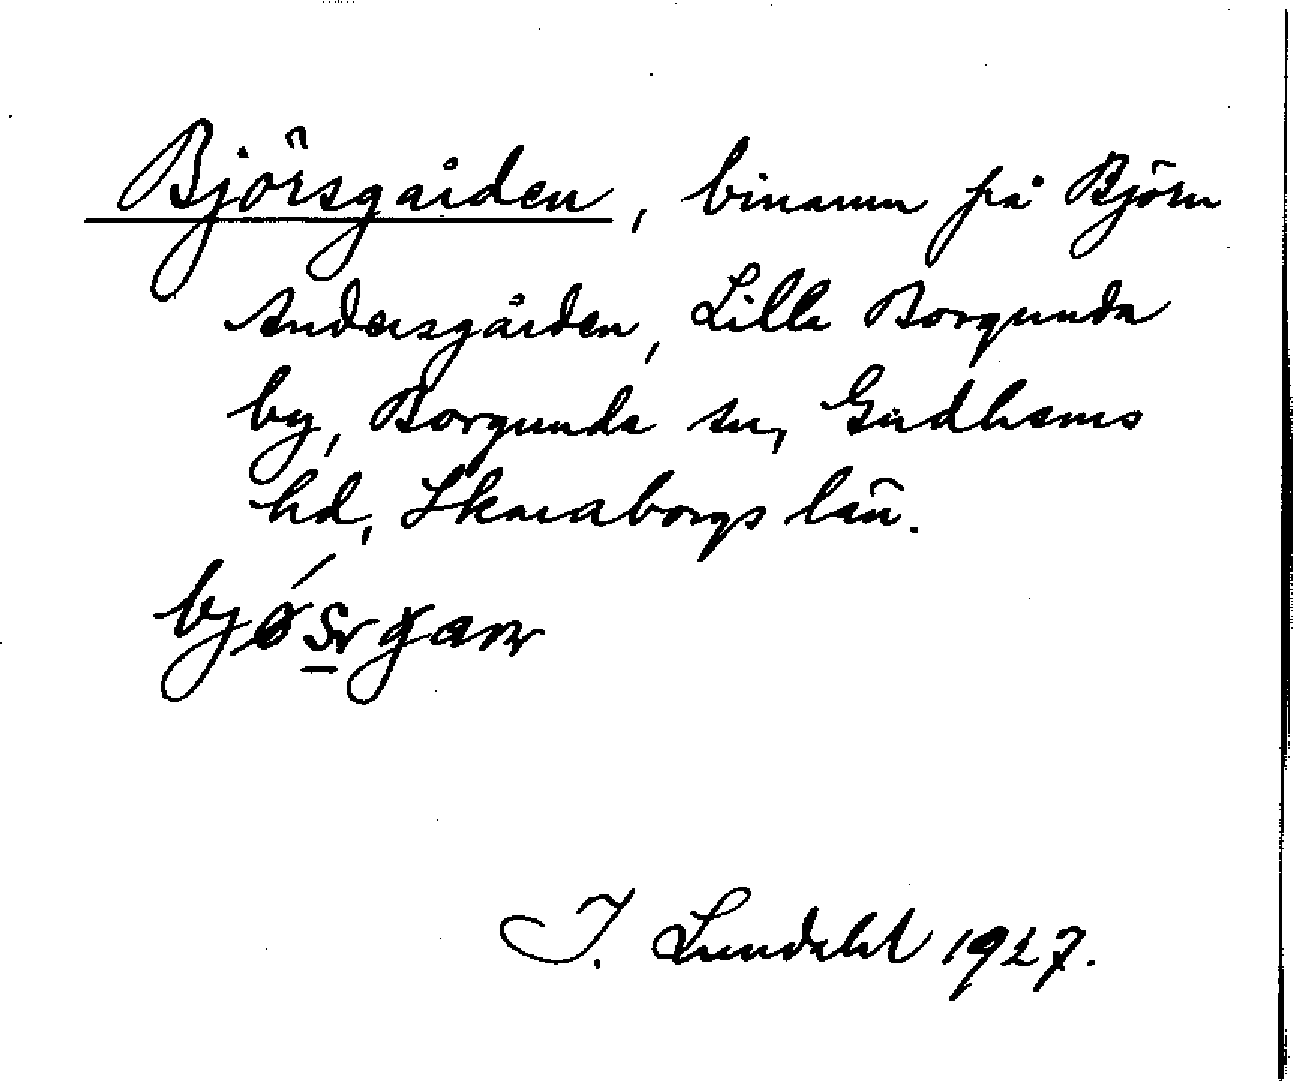 Björsgården, binamn på Björn
Andersgården, Lilla Borgunda
by, Borgunda sn, Gudhems
hd, Skaraborgs län.
I. Lundahl 1927.